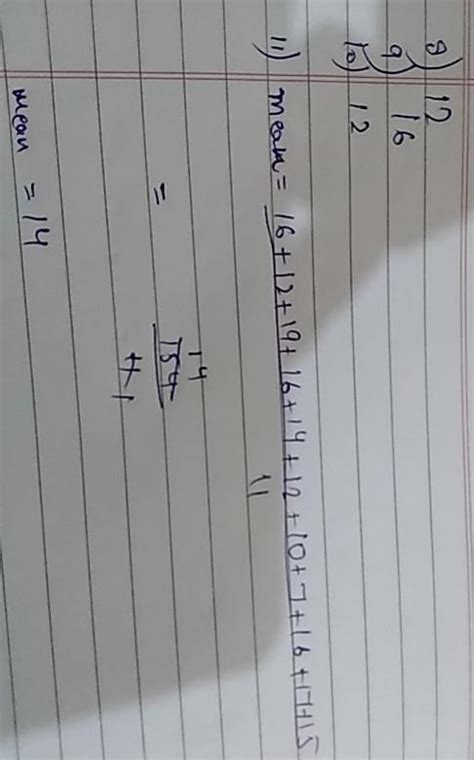 8) 12
9) 16
10) 12
11) mean = 16+12+19+16+14+12+10+7+16+17+15
11
= 14
154
11
mean = 14